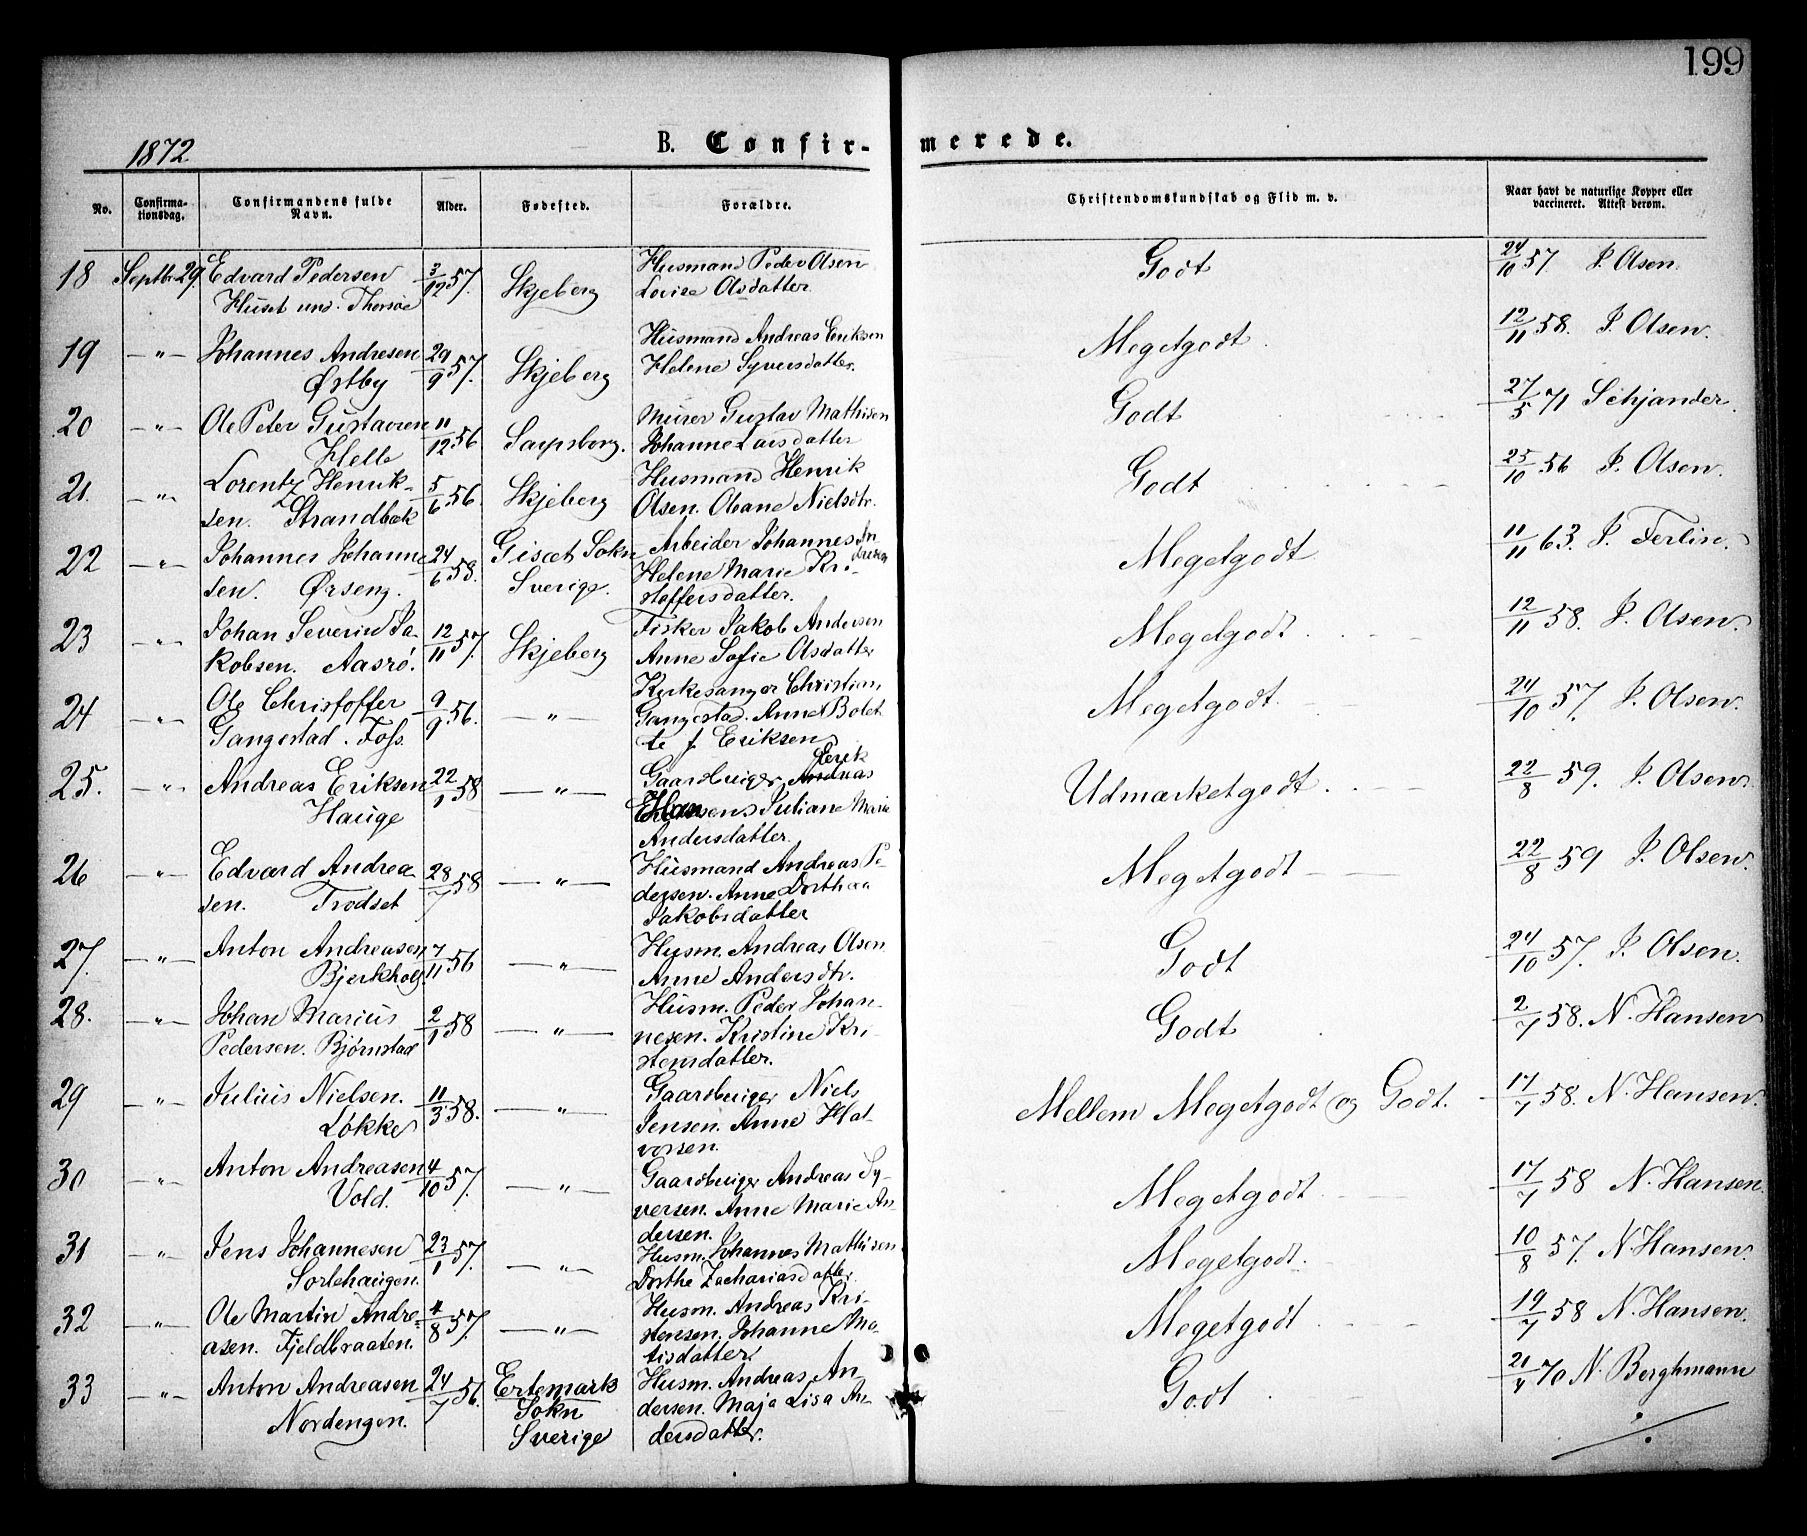 199
1872
B. Confir- merede.
No. Confirma-tionsdag. Confirmandens fulde Navn. Alder. Fødested. Forældre. Christendomskundskab og Flid m. v. Naar havt de naturlige Kopper eller vaccineret. Attest derom.
18 Septbr 29 Edvard Pedersen 3/12 57. Skjeberg Husmand Peder Olsen Godt 24/10 57 J. Olsen.
Huset und. Thorsøe Lovise Olsdatter
19 —"— Johannes Andresen 29/9 57. Skjeberg Husmand Andreas Eriksen Megetgodt 12/11 58. J. Olsen.
Østby Helene Syversdatter.
20 —"— Ole Peter Gustavsen 11/12 56 Sarpsborg. Murer Gustav Mathisen Godt 27/5 71 Schjander.
Helle Johanne Larsdatter
21. —"— Lorentz Henrik- 5/6 56. Skjeberg Husmand Henrik Godt 25/10 56 J. Olsen.
sen. Strandbæk Olsen. Oleane Nielsdtr.
22 —"— Johannes Johanne 24/6 58. Sokn Arbeider Johannes An Megetgodt 11/11 63. J. Ferlin.
sen. Ørseng. Sverige. dresen Helene Marie Kri-
stoffersdatter.
23 —"— Johan Severin Ja- 12/11 57. Skjeberg Fisker Jakob Andersen Megetgodt 12/11 58. J. Olsen.
kobsen. Aasrø. Anne Sofie Olsdatter
24 —"— Ole Christoffer 9/9 56. —"— Kirkesanger Christian Megetgodt. 24/10 57. J. Olsen.
Gangestad. Foss. Gangestad. Anne Bolet
te f. Eriksen
25. —"— Andreas Eriksen 22/1 58 —"— Gaardbruger Erik Udmærketgodt. 22/8 59. J. Olsen.
Hauge Hansen. Juliane Marie
Andersdatter.
26 —"— Edvard Andrea- 28/7 58 —"— Husmand Andreas Pe- Megetgodt 22/8 59 J. Olsen.
sen. Trodset dersen. Anne Dorthea
Jakobsdatter
27. —"— Anton Andreasen 7/11 56 —"— Husm. Andreas Olsen Godt 24/10 57. J. Olsen.
Bjerkholt. Anne Andersdtr.
28. —"— Johan Marius 2/1 58 —"— Husm. Peder Johan- Godt 2/7 58. N. Hansen
Pedersen. Bjørnstad nesen. Kristine Kri-
stensdatter.
29 —"— Julius Nielsen. 11/3 58. —"— Gaardbruger Niels Mellem Megetgodt og Godt. 17/7 58. N. Hansen.
Løkke Jensen. Anne Hal-
vorsen.
30 —"— Anton Andreasen 4/10 57. —"— Gaardbruger Andreas Sy- Megetgodt 17/7 58 N. Hansen.
Vold. versen. Anne Marie An-
dersen.
31 —"— Jens Johannesen 23/1 57. —"— Husm. Johannes Mathisen Megetgodt. 10/8 57. N. Hansen.
Sorlehaugen. Dorthe Zachariasdatter.
32 —"— Ole Martin Andre- 4/8 57. —"— Husm. Andreas Kri- Megetgodt 19/7 58 N. Hansen.
asen. Fjeldbraaten. stensen. Johanne Ma-
tisdatter.
33 —"— Anton Andreasen 24/7 56. Ertemark Husm. Andreas An Godt 21/4 70 N. Berghmann
Nordengen. Sokn dersen. Maja Lisa An-
Sverige dersdatter.